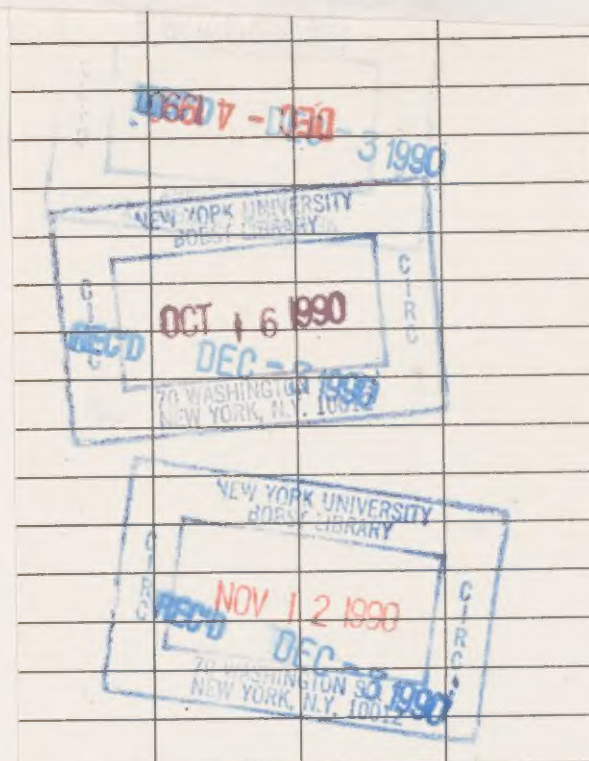 DEC - 3 1990
NEW YORK UNIVERSITY
BOBST LIBRARY
CIRC
CIRC
OCT 16 1990
REC'D
DEC - 3 1990
70 WASHINGTON
NEW YORK, N.Y. 10012
NEW YORK UNIVERSITY
BOBST LIBRARY
CIRC
CIRC
NOV 12 1990
REC'D
DEC - 3 1990
70 WASHINGTON SQ
NEW YORK, N.Y. 10012